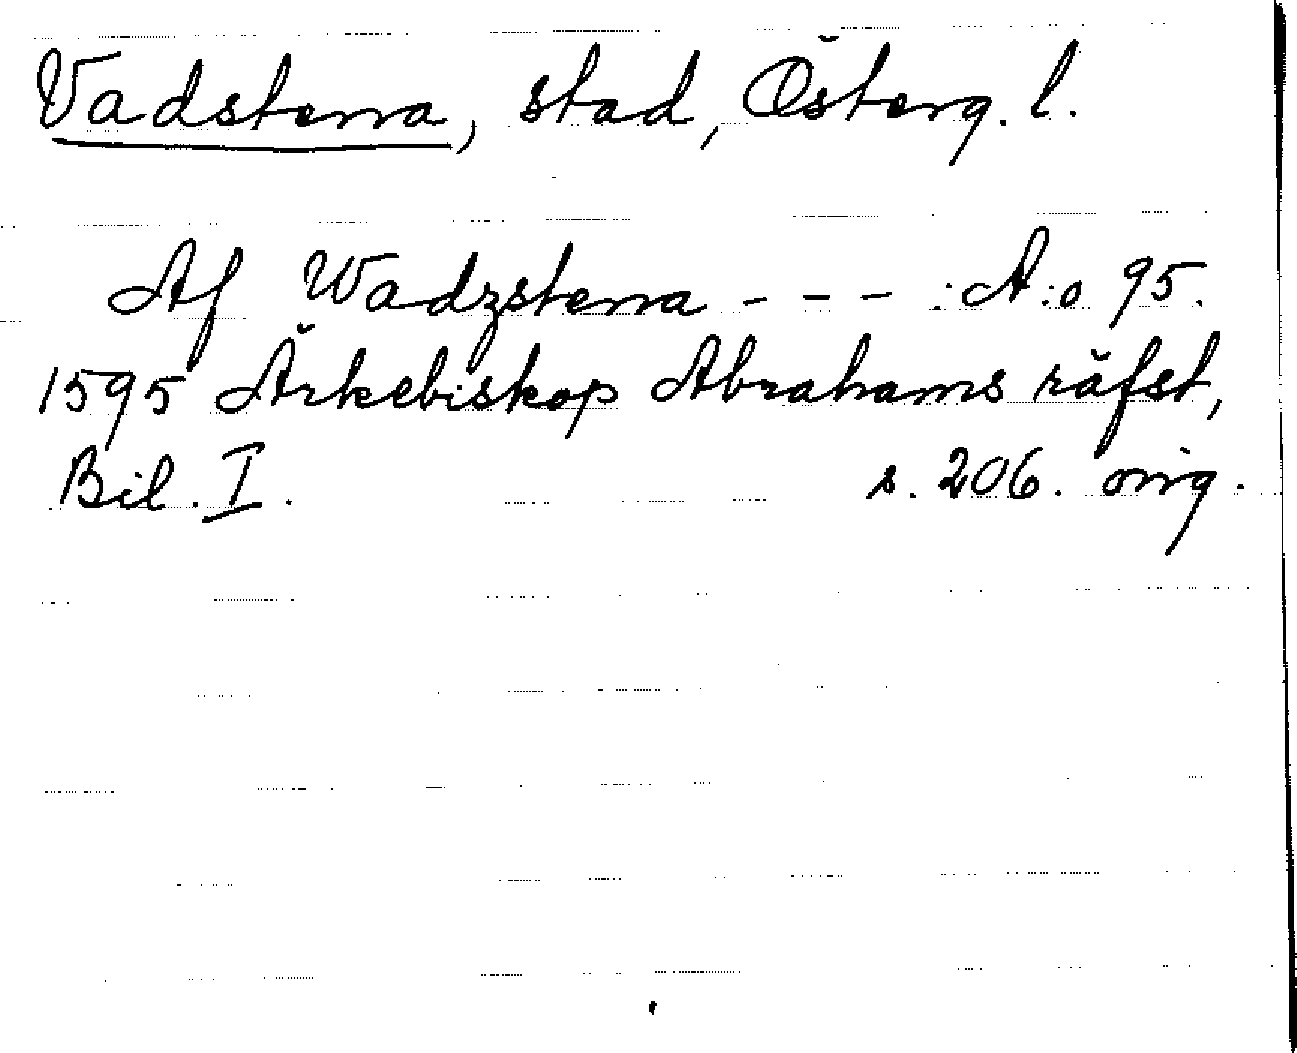 Vadstena, stad, Österg. l.
Af Wadzstena - - - :A:o 95.
1595 Ärkebiskop Abrahams räfst,
Bil. I. s. 206. orig.